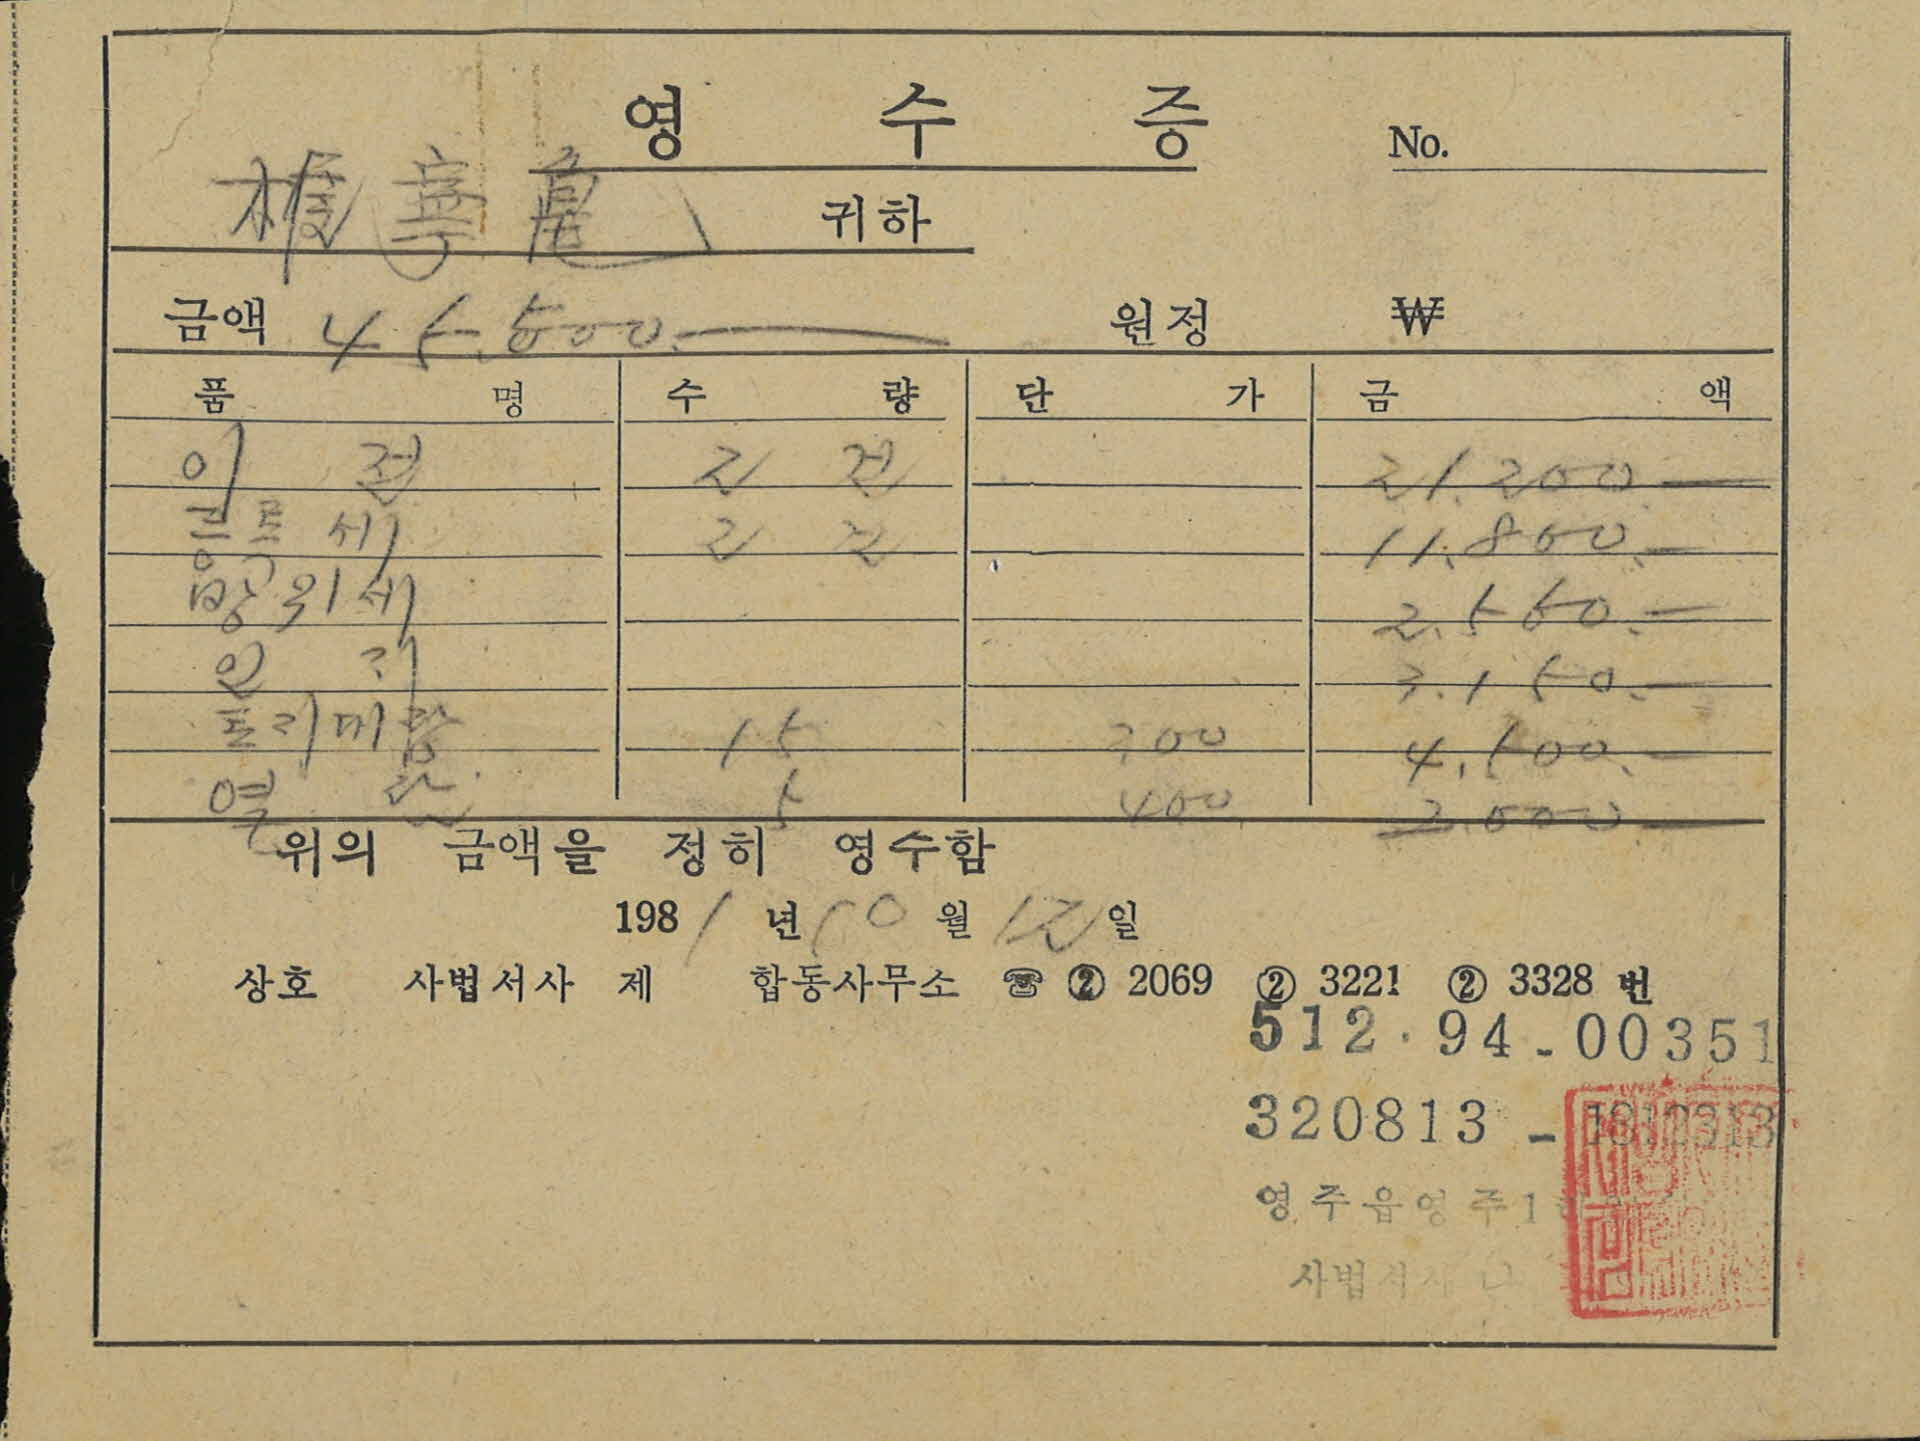 영 수 증 No.
귀하
금액 45.500.— 원정 ₩
품 명 수 량 단 가 금 액
이 전 2 건 21.200.—
등록세 2 건 11.800.—
방위세 2.550.—
인 지 3.150.—
토지대장 15 300 4.500.—
열 람 5 400 2.000—
위의 금액을 정히 영수함
1981년 10월 12일
상호 사법서사 제 합동사무소 ☎ ② 2069 ② 3221 ② 3328 번
512·94-00351
320813-
영주읍영주1
사법서사